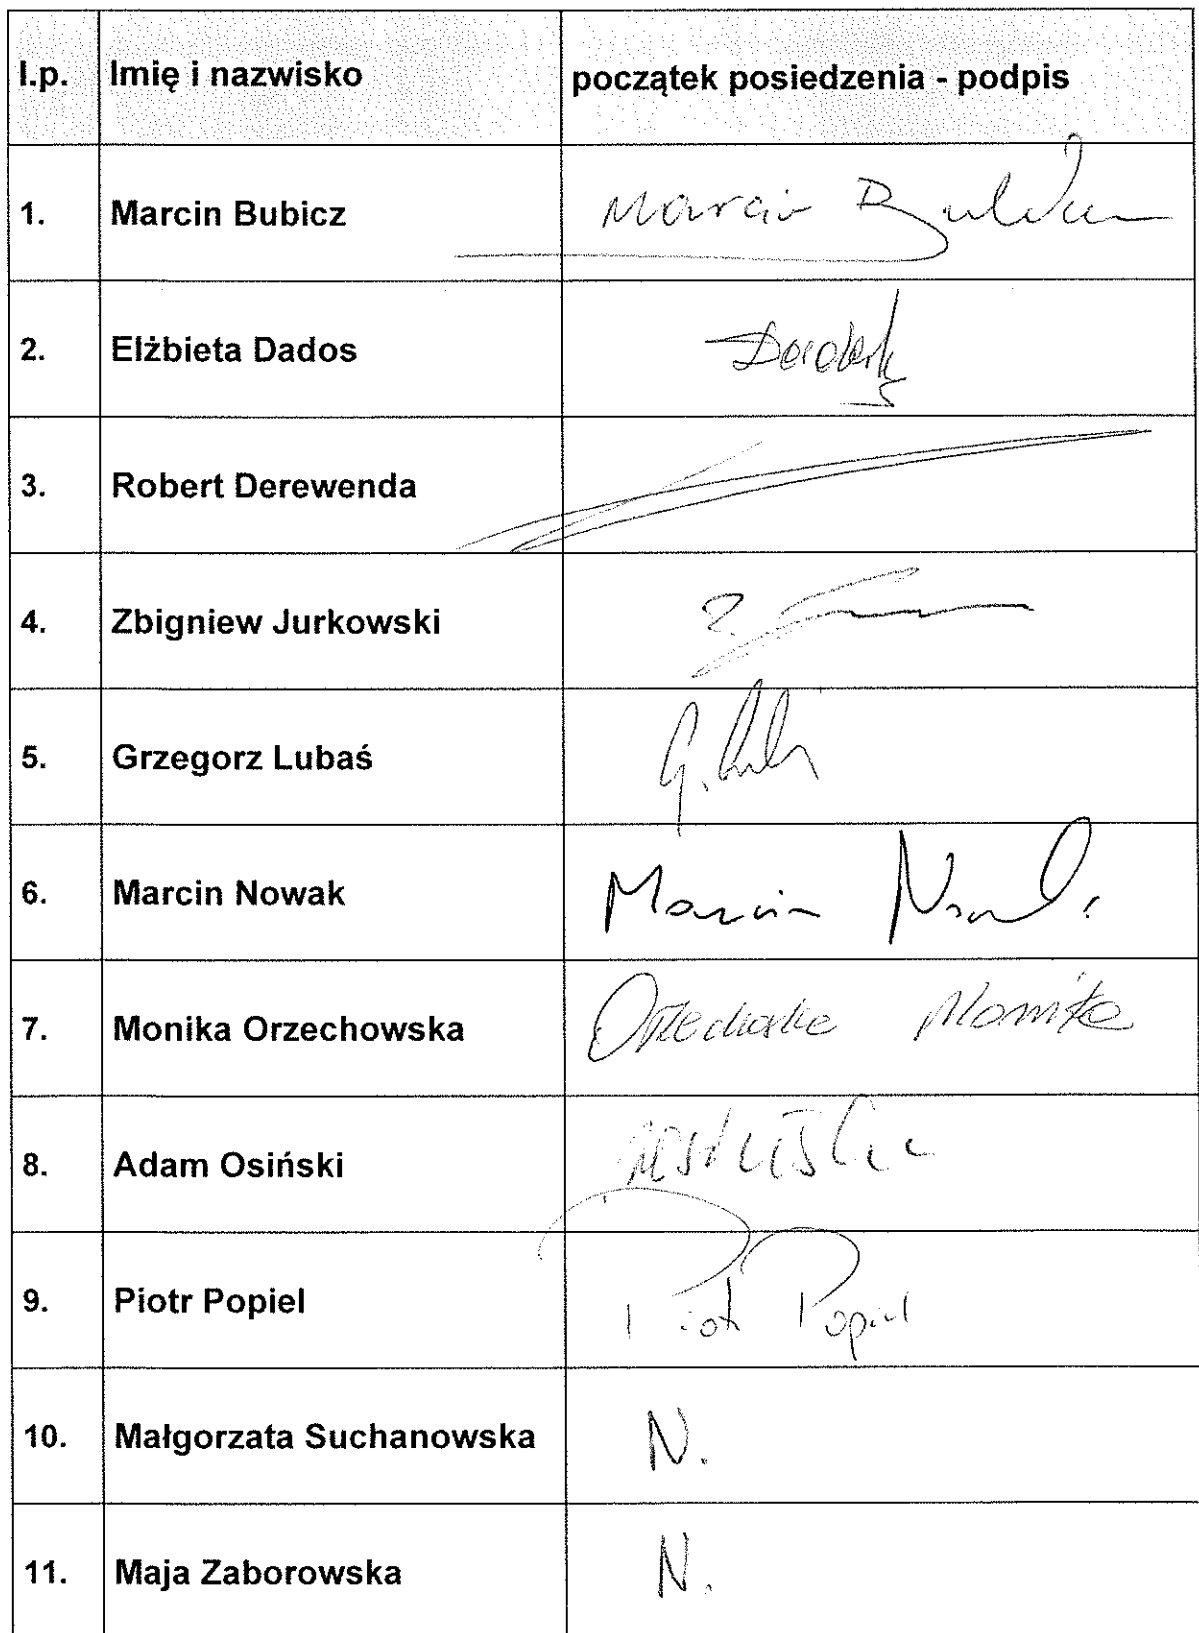 l.p. Imię i nazwisko początek posiedzenia - podpis
1. Marcin Bubicz Marcin
2. Elżbieta Dados
3. Robert Derewenda
4. Zbigniew Jurkowski
5. Grzegorz Lubaś
6. Marcin Nowak Marcin Nowak
7. Monika Orzechowska Orzechowska Monika
8. Adam Osiński
9. Piotr Popiel Piotr Popiel
10. Małgorzata Suchanowska N.
11. Maja Zaborowska N.